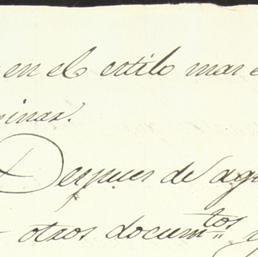 en el estilo mas
Despues de
otros docum.tos